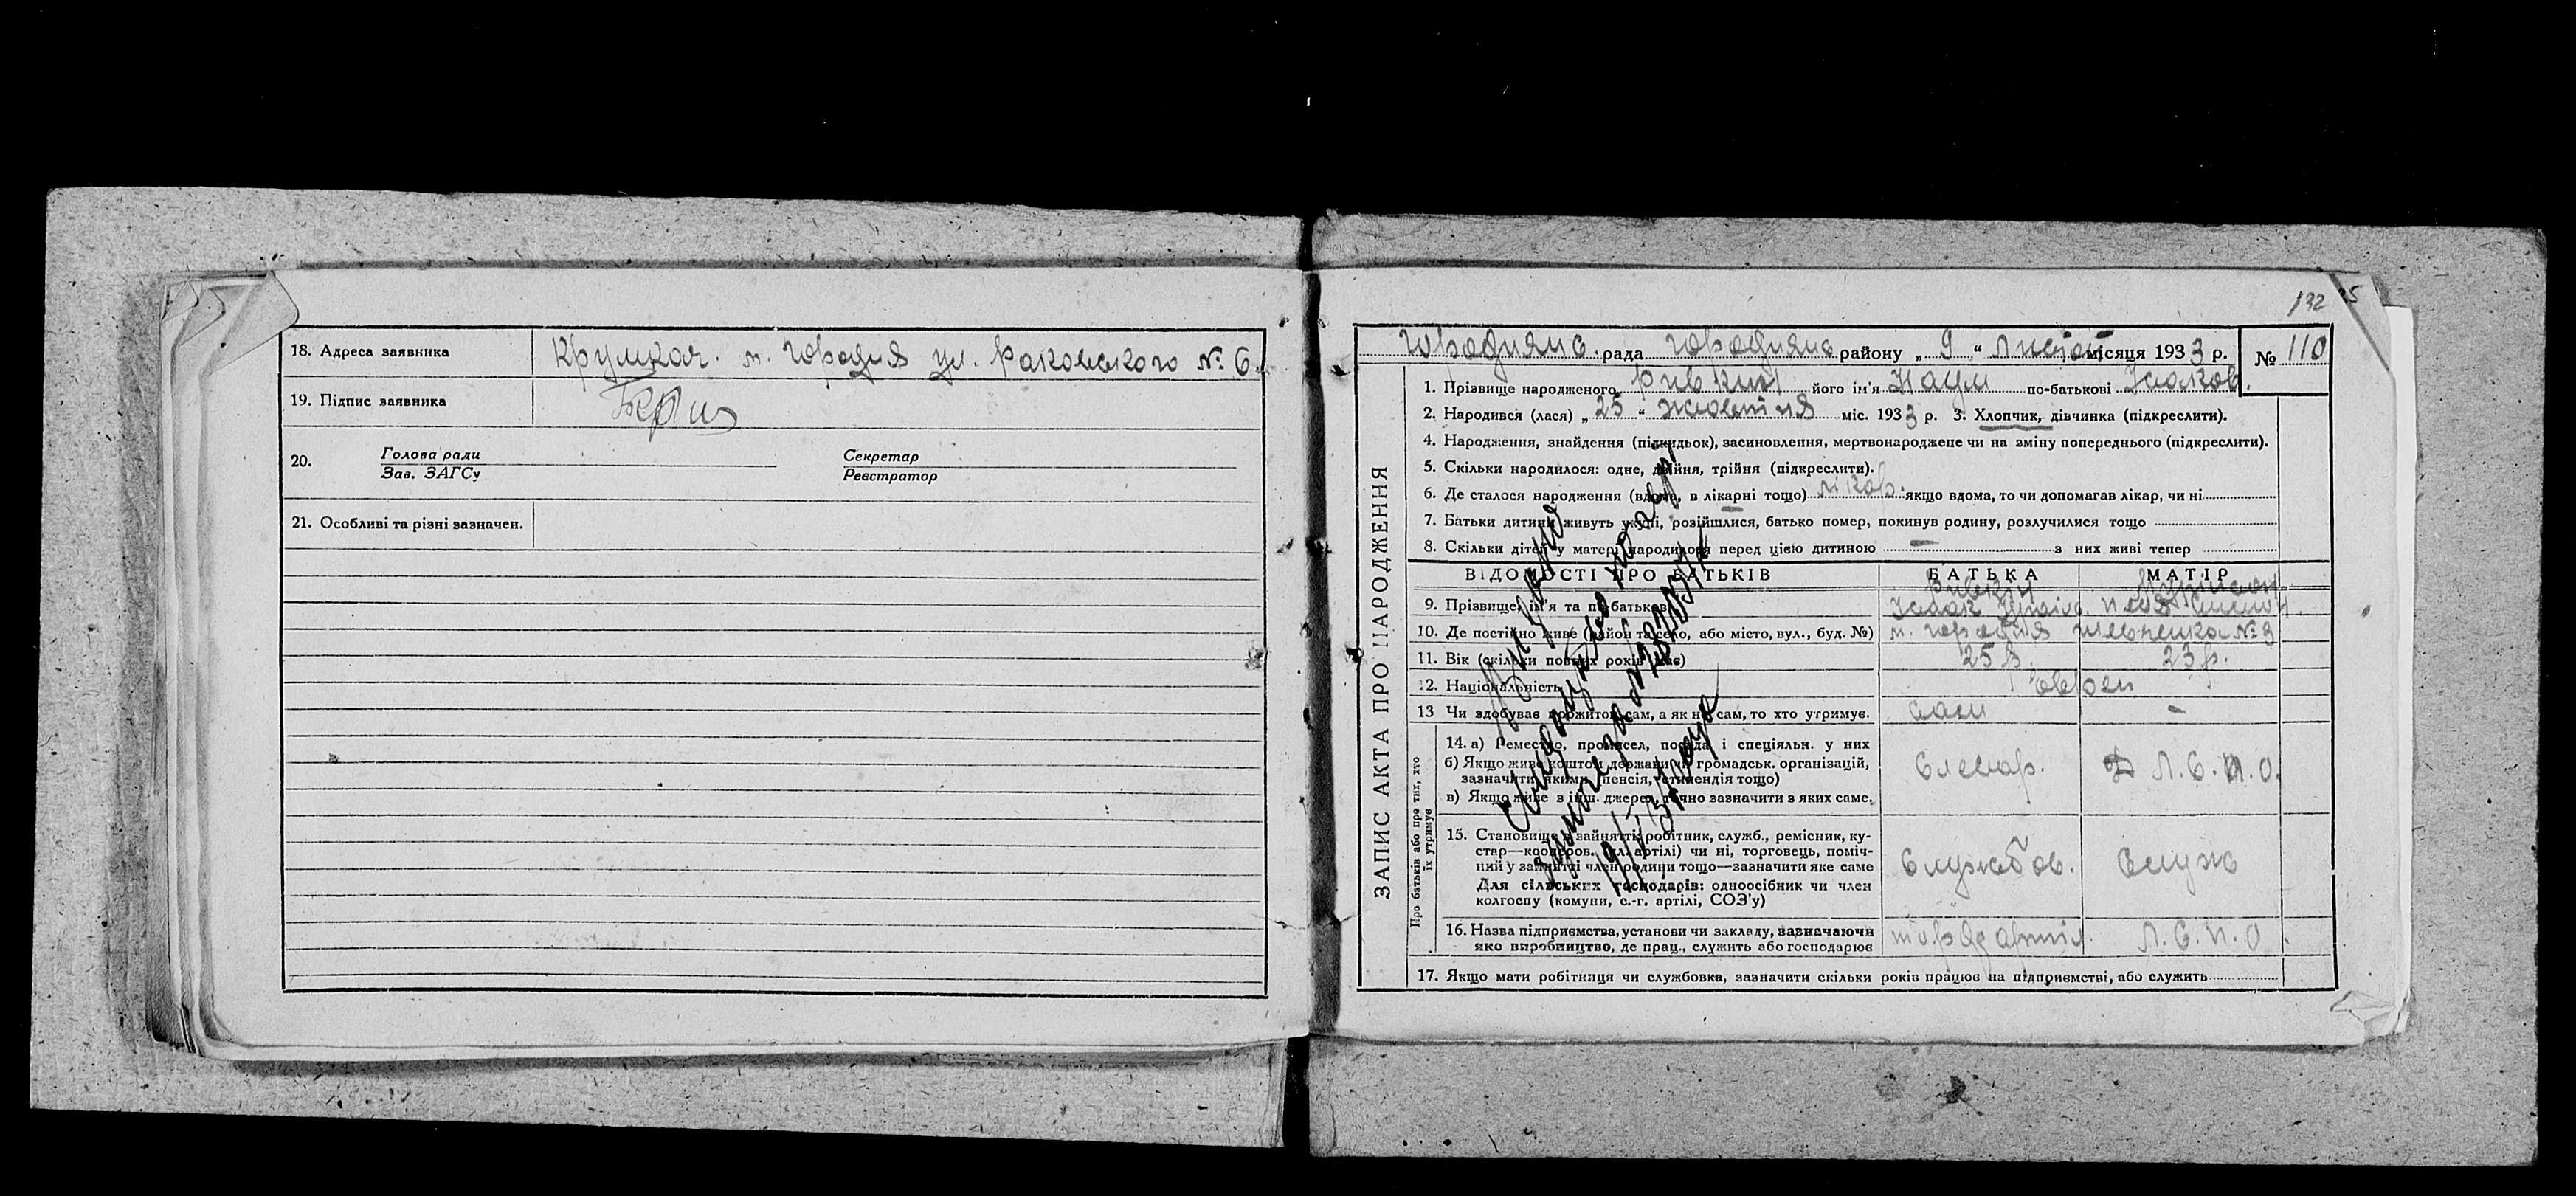 18. Адреса заявника Крумкач. м. Городня ул. Раковського № 6.
19. Підпис заявника
20. Голова ради Секретар
Зав. ЗАГСу Реєстратор
21. Особливі та різні зазначен.
132
ЗАПИС АКТА ПРО НАРОДЖЕННЯ
Городнянс. рада Городнянс району „ 9 “ Листоп місяця 1933 р. № 110
1. Прізвище народженого Ривкин його ім'я Наум по-батькові Ісаков.
2. Народився (лася) „ 25 “ жовтня міс. 1933 р. 3. Хлопчик, дівчинка (підкреслити).
4. Народження, знайдення (підкидьок), засиновлення, мертвонароджене чи на зміну попереднього (підкреслити).
5. Скільки народилося: одне, двійня, трійня (підкреслити).
6. Де сталося народження (вдома, в лікарні тощо) лікар. якщо вдома, то чи допомагав лікар, чи ні
7. Батьки дитини живуть укупі, розійшлися, батько помер, покинув родину, розлучилися тощо
8. Скільки дітей у матері народилося перед цією дитиною — з них живі тепер
ВІДОМОСТІ ПРО БАТЬКІВ БАТЬКА МАТІР
Ривкин
9. Прізвище, ім'я та по-батькові Ісаак
10. Де постійно живе (район та село, або місто, вул., буд. №) м. Городня Шевченка № 3
11. Вік (скільки повних років має) 25 р. 23 р.
12. Національність евреи
13 Чи здобуває прожиток сам, а як не сам, то хто утримує. сам —
Про батьків або про тих, хто їх утримує
14. а) Ремество, промисел, посада і спеціяльн. у них
б) Якщо живе коштом держави чи громадськ. організацій,
зазначити якими (пенсія, стипендія тощо) Слесар. Л. С. П. О.
в) Якщо живе з інш. джерел, точно зазначити з яких саме.
15. Становище в зайнятті: робітник, служб., ремісник, ку-
стар—кооперов. (чл. артілі) чи ні, торговець, поміч-
ний у занятті член родини тощо—зазначити яке саме Службов. Служ
Для сільських господарів: одноосібник чи член
колгоспу (комуни, с.-г. артілі, СОЗ'у)
16. Назва підприємства, установи чи закладу, зазначаючи
яко виробництво, де прац., служить або господарює Л. С. П. О.
17. Якщо мати робітниця чи службовка, зазначити скільки років працює на підприємстві, або служить